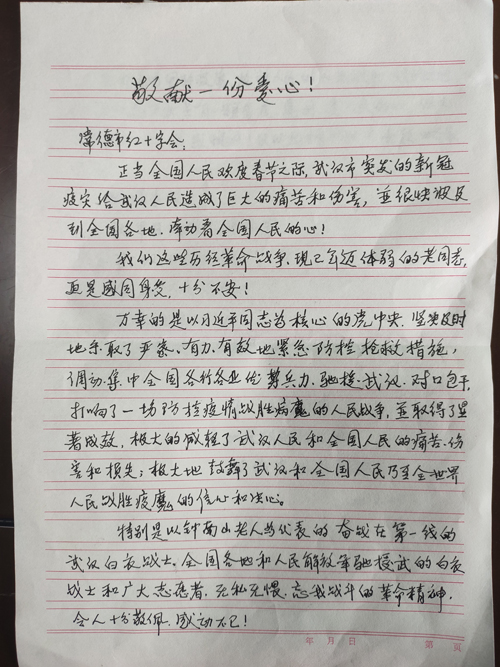 敬献一份爱心！
常德市红十字会：
正当全国人民欢度春节之际，武汉市突发的新冠
疫灾给武汉人民造成了巨大的痛苦和伤害，并很快波及
到全国各地，牵动着全国人民的心！
我们这些历经革命战争、现已年迈体弱的老同志，
更是感同身受，十分不安！
万幸的是以习近平同志为核心的党中央，坚决及时
地采取了严密、有力、有效地紧急防控抢救措施，
调动集中全国各行各业优势兵力，驰援武汉，对口包干，
打响了一场防控疫情战胜病魔的人民战争，并取得了显
著成效，极大的减轻了武汉人民和全国人民的痛苦、伤
害和损失；极大地鼓舞了武汉和全国人民乃至全世界
人民战胜疫魔的信心和决心。
特别是以钟南山老人为代表的奋战在第一线的
武汉白衣战士、全国各地和人民解放军驰援武的白衣
战士和广大志愿者，无私无惧、忘我战斗的革命精神，
令人十分敬佩，感动不已！
年 月 日 第 页